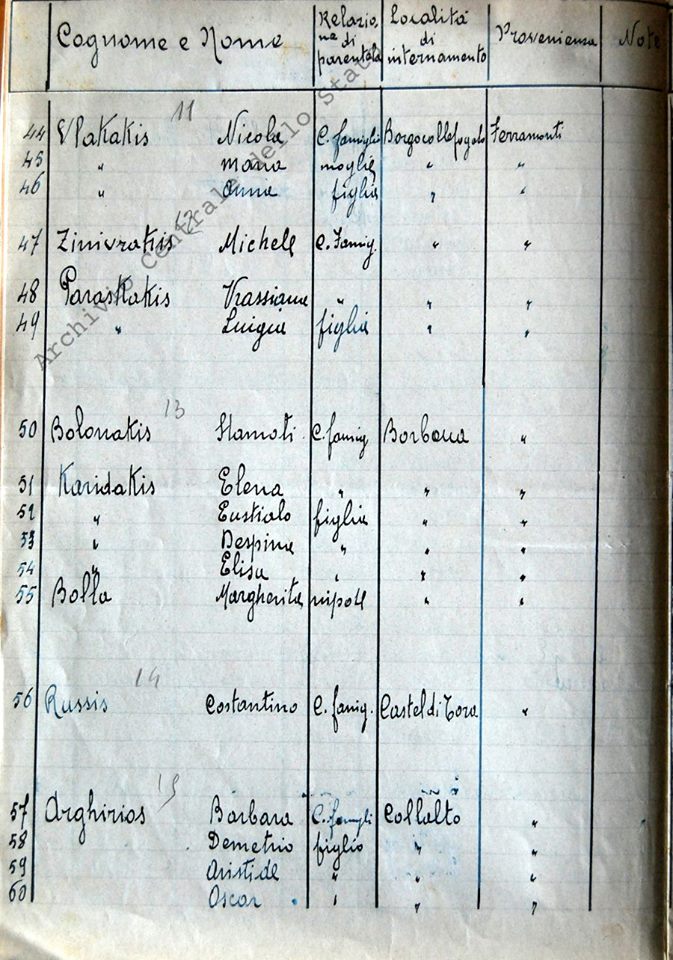 Cognome e Nome Relazione di parentela Località di internamento Provenienza Note
Archivio Centrale dello Stato
11
44 Vlakakis Nicola C. famiglia Borgocollefegato Ferramonti
45 " maria moglie " "
46 " Anna figlia " "
12
47 Zinivrakis Michele C. Famig. " "
48 Paraskakis Vrassiana " " "
49 " Luigia figlia " "
13
50 Bolonakis Stamati C. famig. Borbona "
51 Karidakis Elena " " "
52 " figlia " "
53 " Despina " " "
54 " Elisa " " "
55 Bolla Margherita nipote " "
14
56 Russis Costantino C. famig. Castel di Tora "
15
57 Arghirios Barbara C. famigli Collalto "
58 Demetrio figlio " "
59 Aristide " " "
60 Oscar " " "